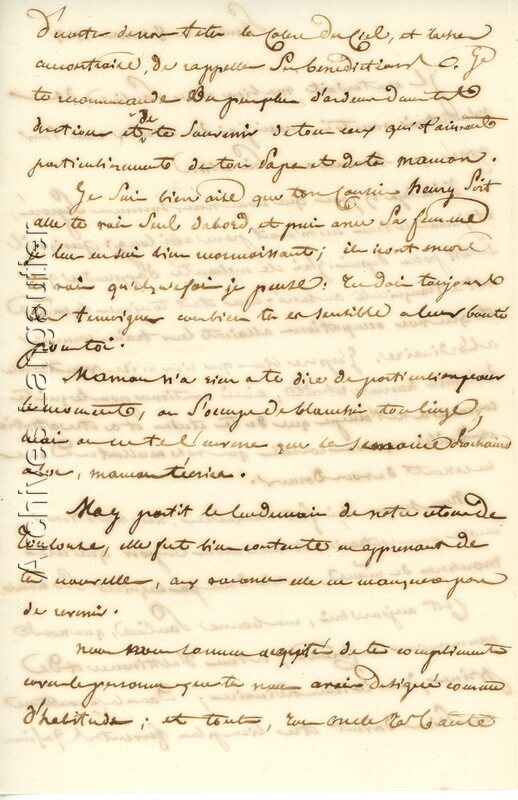 de non tenter la colere du Ciel, et tacher
au contraire, de rappeller ses benedictions &. Je
te recommande un peu plus d'ardeur dans tes
et de te souvenir de tous ceux qui t'aiment
particulierement de ton Papa et de ta maman.
Je suis bien aise que ton Cousin henry soit
allé te voir seul d'abord, et puis avec sa femme
je leur en suis bien reconnoissant; ils iront encore
te voir quelquefois je pense. Tu dois toujours
leur temoigner combien tu es sensible a leurs bontés
pour toi.
Maman n'a rien a te dire de particulier pour
le moment, on s'occupe de blanchir ton linge,
mais on ne te l'enverra que la semaine prochaine
alors, maman t'écrira.
May partit le lendemain de notre retour de
toulouse, elle fut bien contente en apprenant de
tes nouvelles, aux vacances elle ne manquera pas
de revenir.
nous nous sommes acquité de tes compliments
envers les personnes que tu nous avais designé comme
d'habitude; et tous, ton oncle
Archives Langautier